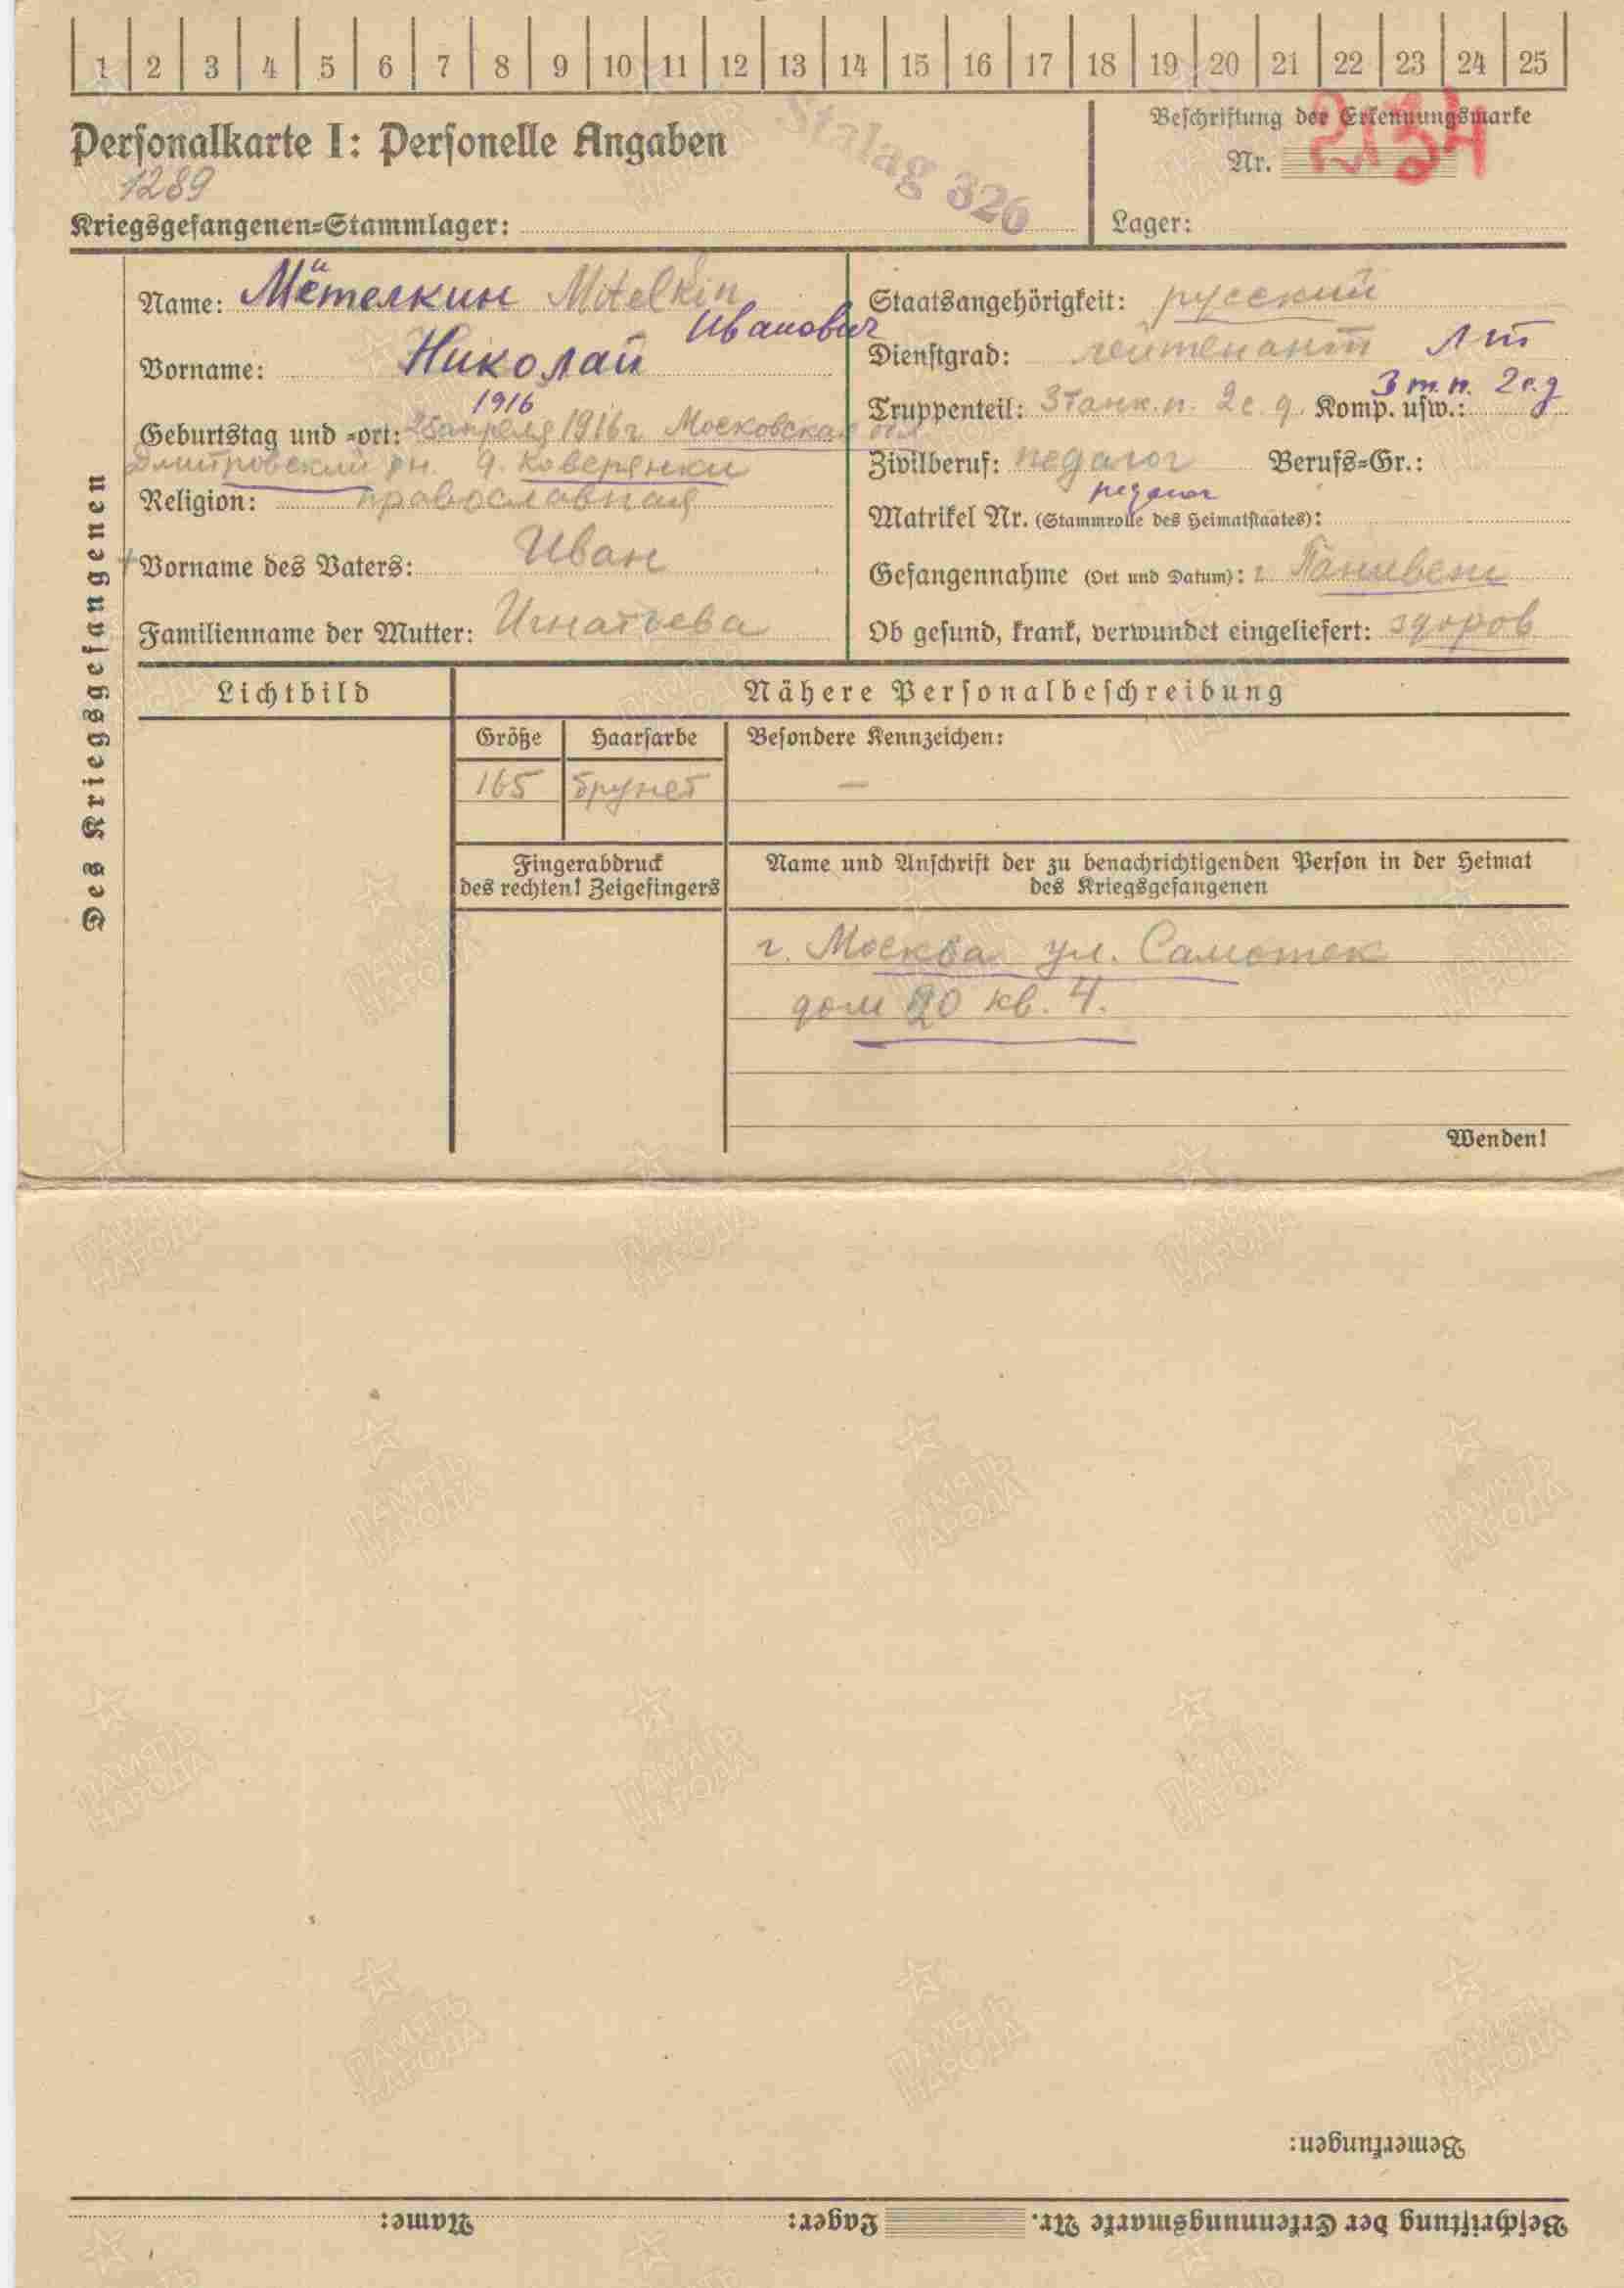 1 2 3 4 5 6 7 8 9 10 11 12 13 14 15 16 17 18 19 20 21 22 23 24 25
Personalkarte I: Personelle Angaben
Stalag 326
Beschriftung der Erkennungsmarke
Nr. 2134
1289
Kriegsgefangenen-Stammlager:
Lager:
Des Kriegsgefangenen
Name: Мётелкин Mitelkin
Иванович
Vorname: Николай
1916
Geburtstag und -ort: 25 апреля 1916 г Московская обл.
Дмитровский рн. д. Коверянки
Religion: православная
Vorname des Vaters: Иван
Familienname der Mutter: Игнатьева
Staatsangehörigkeit: русский
Dienstgrad: лейтенант Лт
3 т.п. 2 с.д
Truppenteil: 3 танк.п. 2 с.д. Komp. usw.:
Zivilberuf: педагог Berufs-Gr.:
педагог
Matrikel Nr. (Stammrolle des Heimatstaates):
Gefangennahme (Ort und Datum): г. Паневеж
Ob gesund, krank, verwundet eingeliefert: здоров
Lichtbild
Nähere Personalbeschreibung
Größe Haarfarbe Besondere Kennzeichen:
165 брунет —
Fingerabdruck
des rechten! Zeigefingers
Name und Anschrift der zu benachrichtigenden Person in der Heimat
des Kriegsgefangenen
г. Москва ул. Самотек
дом 20 кв. 4.
Wenden!
Bemerkungen:
Beschriftung der Erkennungsmarke Nr. Lager: Name:
ПАМЯТЬ
НАРОДА